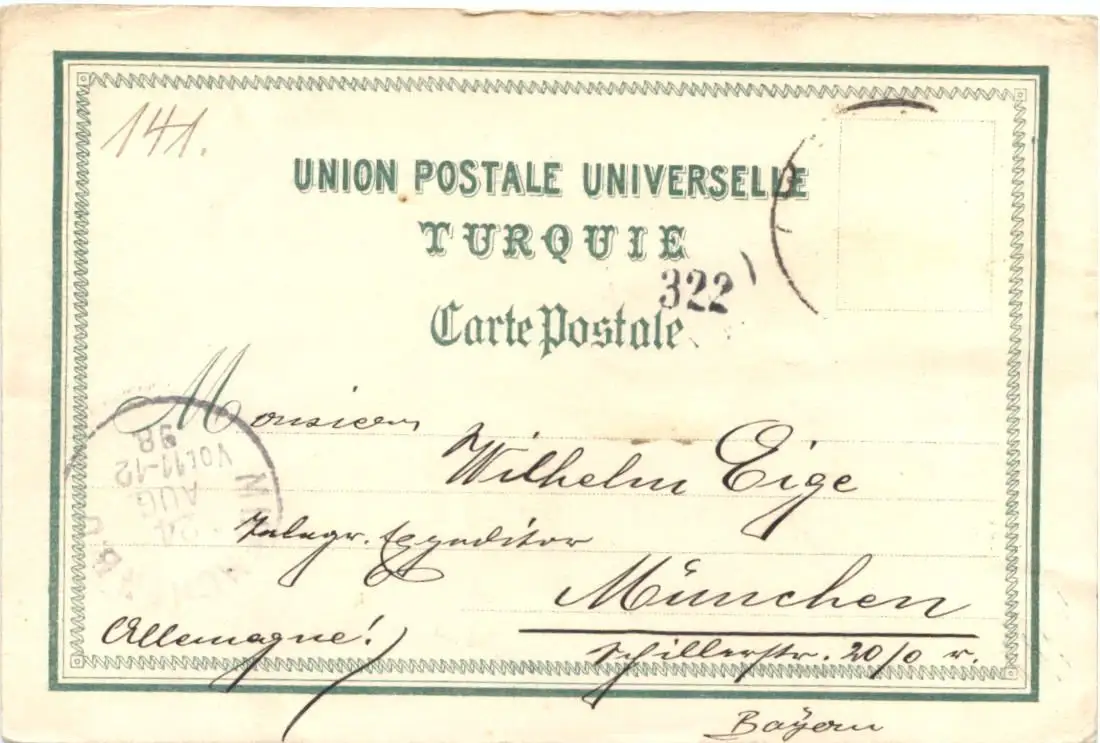 141.
UNION POSTALE UNIVERSELLE
TURQUIE
322
Carte Postale
Monsieur
Wilhelm Eige
Telegr. Expeditor
München
(Allemagne!)
Schillerstr. 20/0 r.
Bayern
24
AUG
VOR 11-12
98